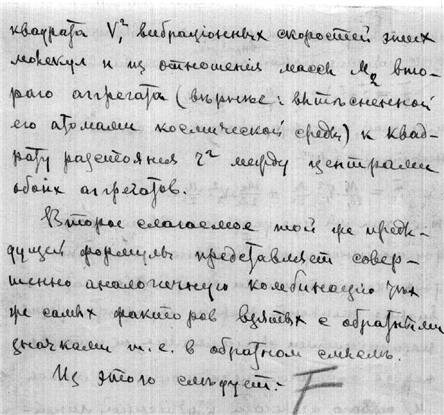 квадрата V₁² вибраціонныхъ скоростей этих
молекул и из отношенія массы M₂ вто-
рого аггрегата (вѣрнѣе: вытѣсненной
его атомами космической среды) к квад-
рату разстоянія r² между центрами
обоих аггрегатов.
Второе слагаемое той же преды-
дущей формулы представляет совер-
шенно аналогичную комбинацію тѣх
же самых факторов взятых с обратными
значками т. е. в обратном смыслѣ.
Из этого слѣдует: